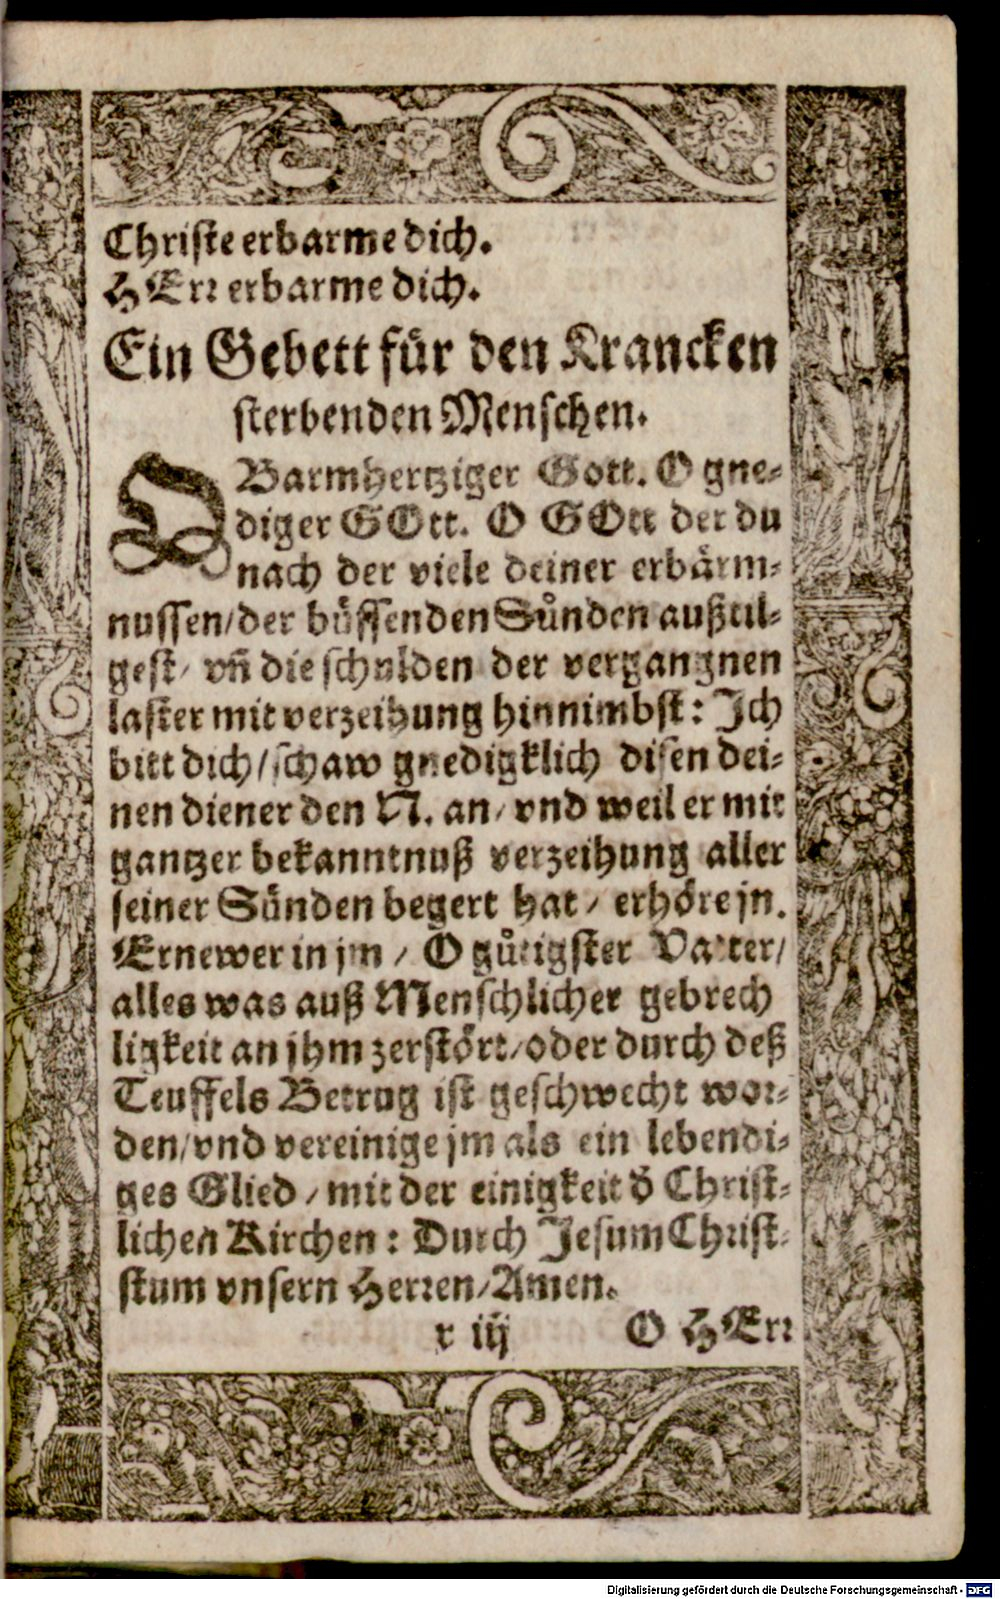 Christe erbarme dich.
HErr erbarme dich.
Ein Gebett für den Krancken
sterbenden Menschen.
OBarmhertziger Gott. O gne-
diger GOtt. O GOtt der du
nach der viele deiner erbärm-
nussen/der büssenden Sünden außtil-
gest/ vñ die schulden der vergangnen
laster mit verzeihung hinnimbst: Ich
bitt dich/schaw gnedigklich disen dei-
nen diener den N. an/ vnd weil er mit
gantzer bekanntnuß verzeihung aller
seiner Sünden begert hat/ erhöre jn.
Ernewer in jm/ O gütigster Vatter/
alles was auß Menschlicher gebrech
ligkeit an jhm zerstört/oder durch deß
Teuffels Betrug ist geschwecht wor-
den/vnd vereinige jm als ein lebendi-
ges Glied/mit der einigkeit d̕ Christ-
lichen Kirchen: Durch Jesum Christ-
stum vnsern Herren/Amen.
r iij O HErr
Digitalisierung gefördert durch die Deutsche Forschungsgemeinschaft - DFG